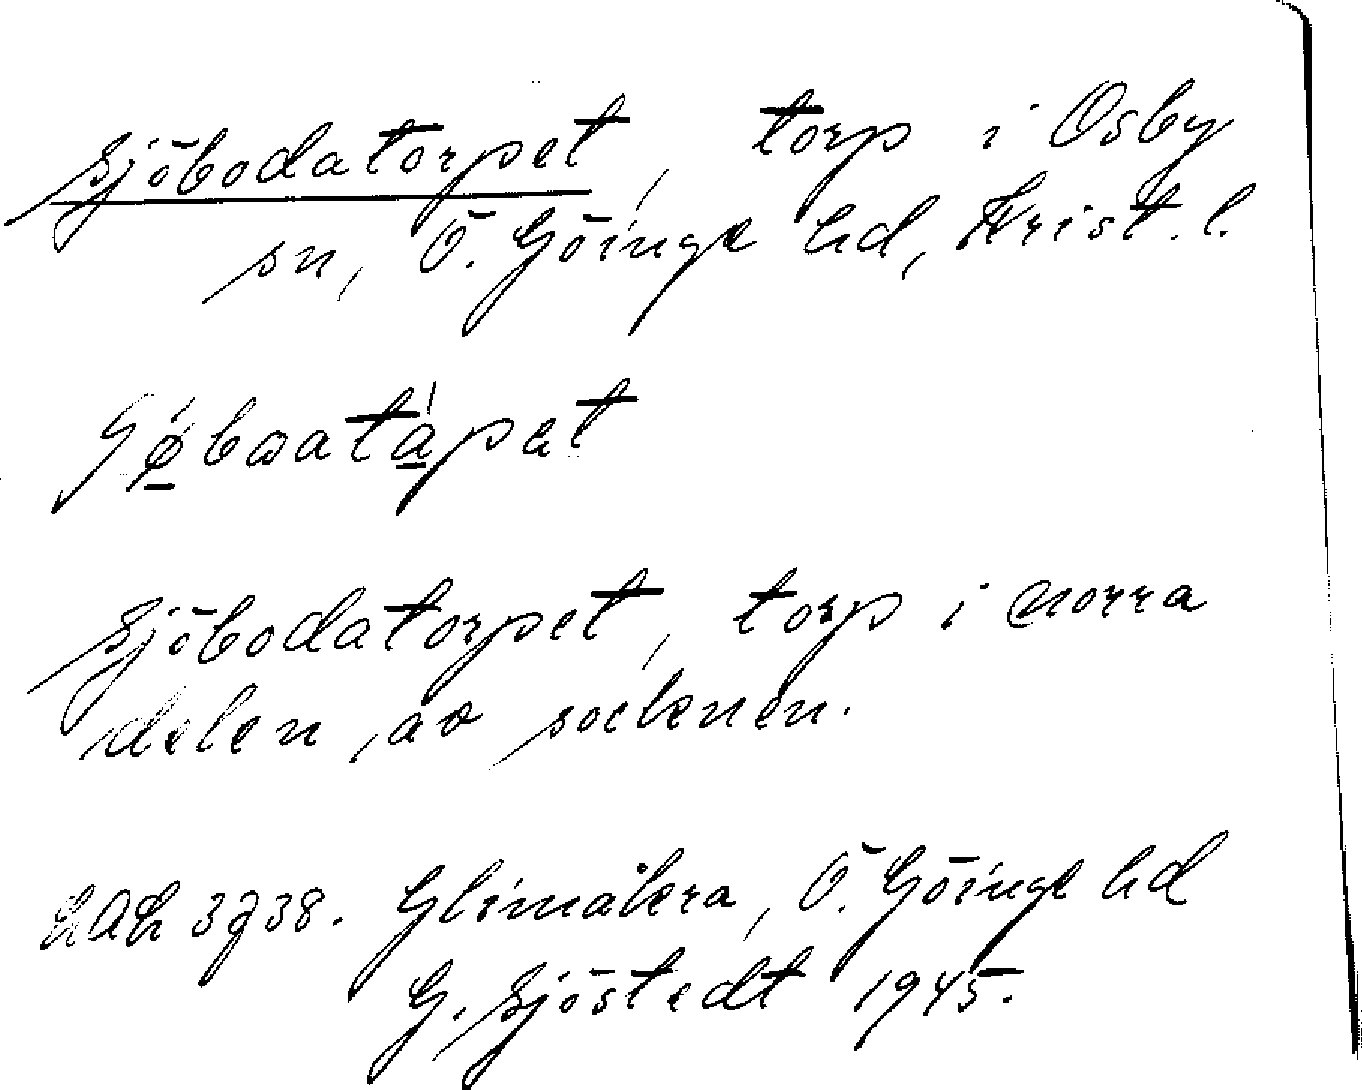 Sjöbodatorpet, torp i Osby
sn, Ö. Göinge hd, Krist. l.
Sjöbodatorpet, torp i norra
delen av socknen.
LAL 3738. Glimåkra, Ö. Göinge hd
G. Sjöstedt 1945.